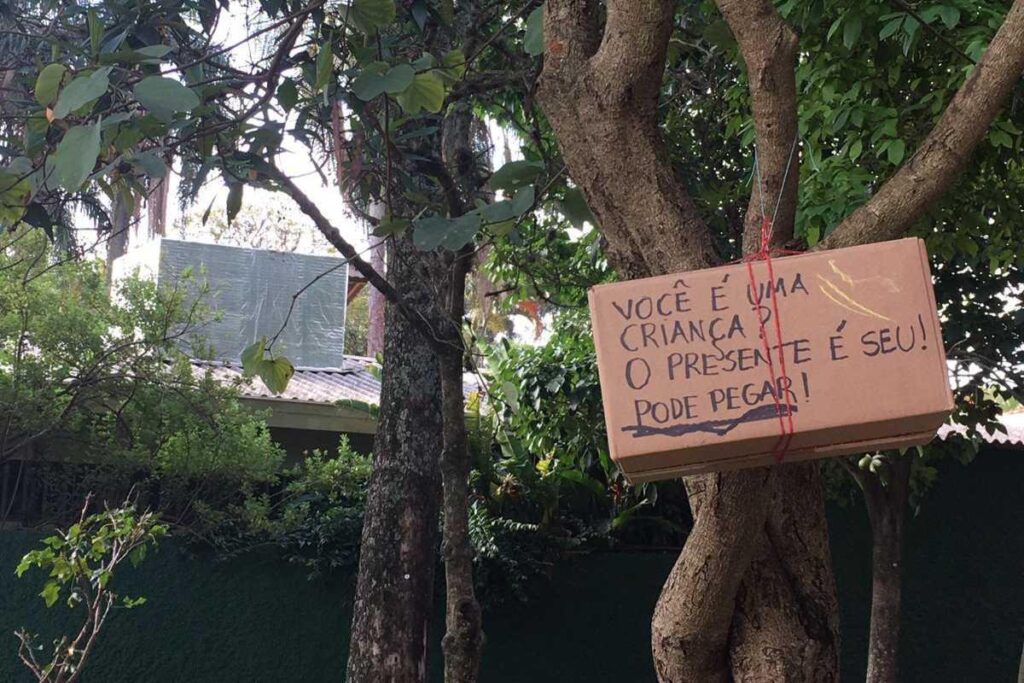 VOCÊ É UMA
CRIANÇA?
O PRESENTE É SEU!
PODE PEGAR!